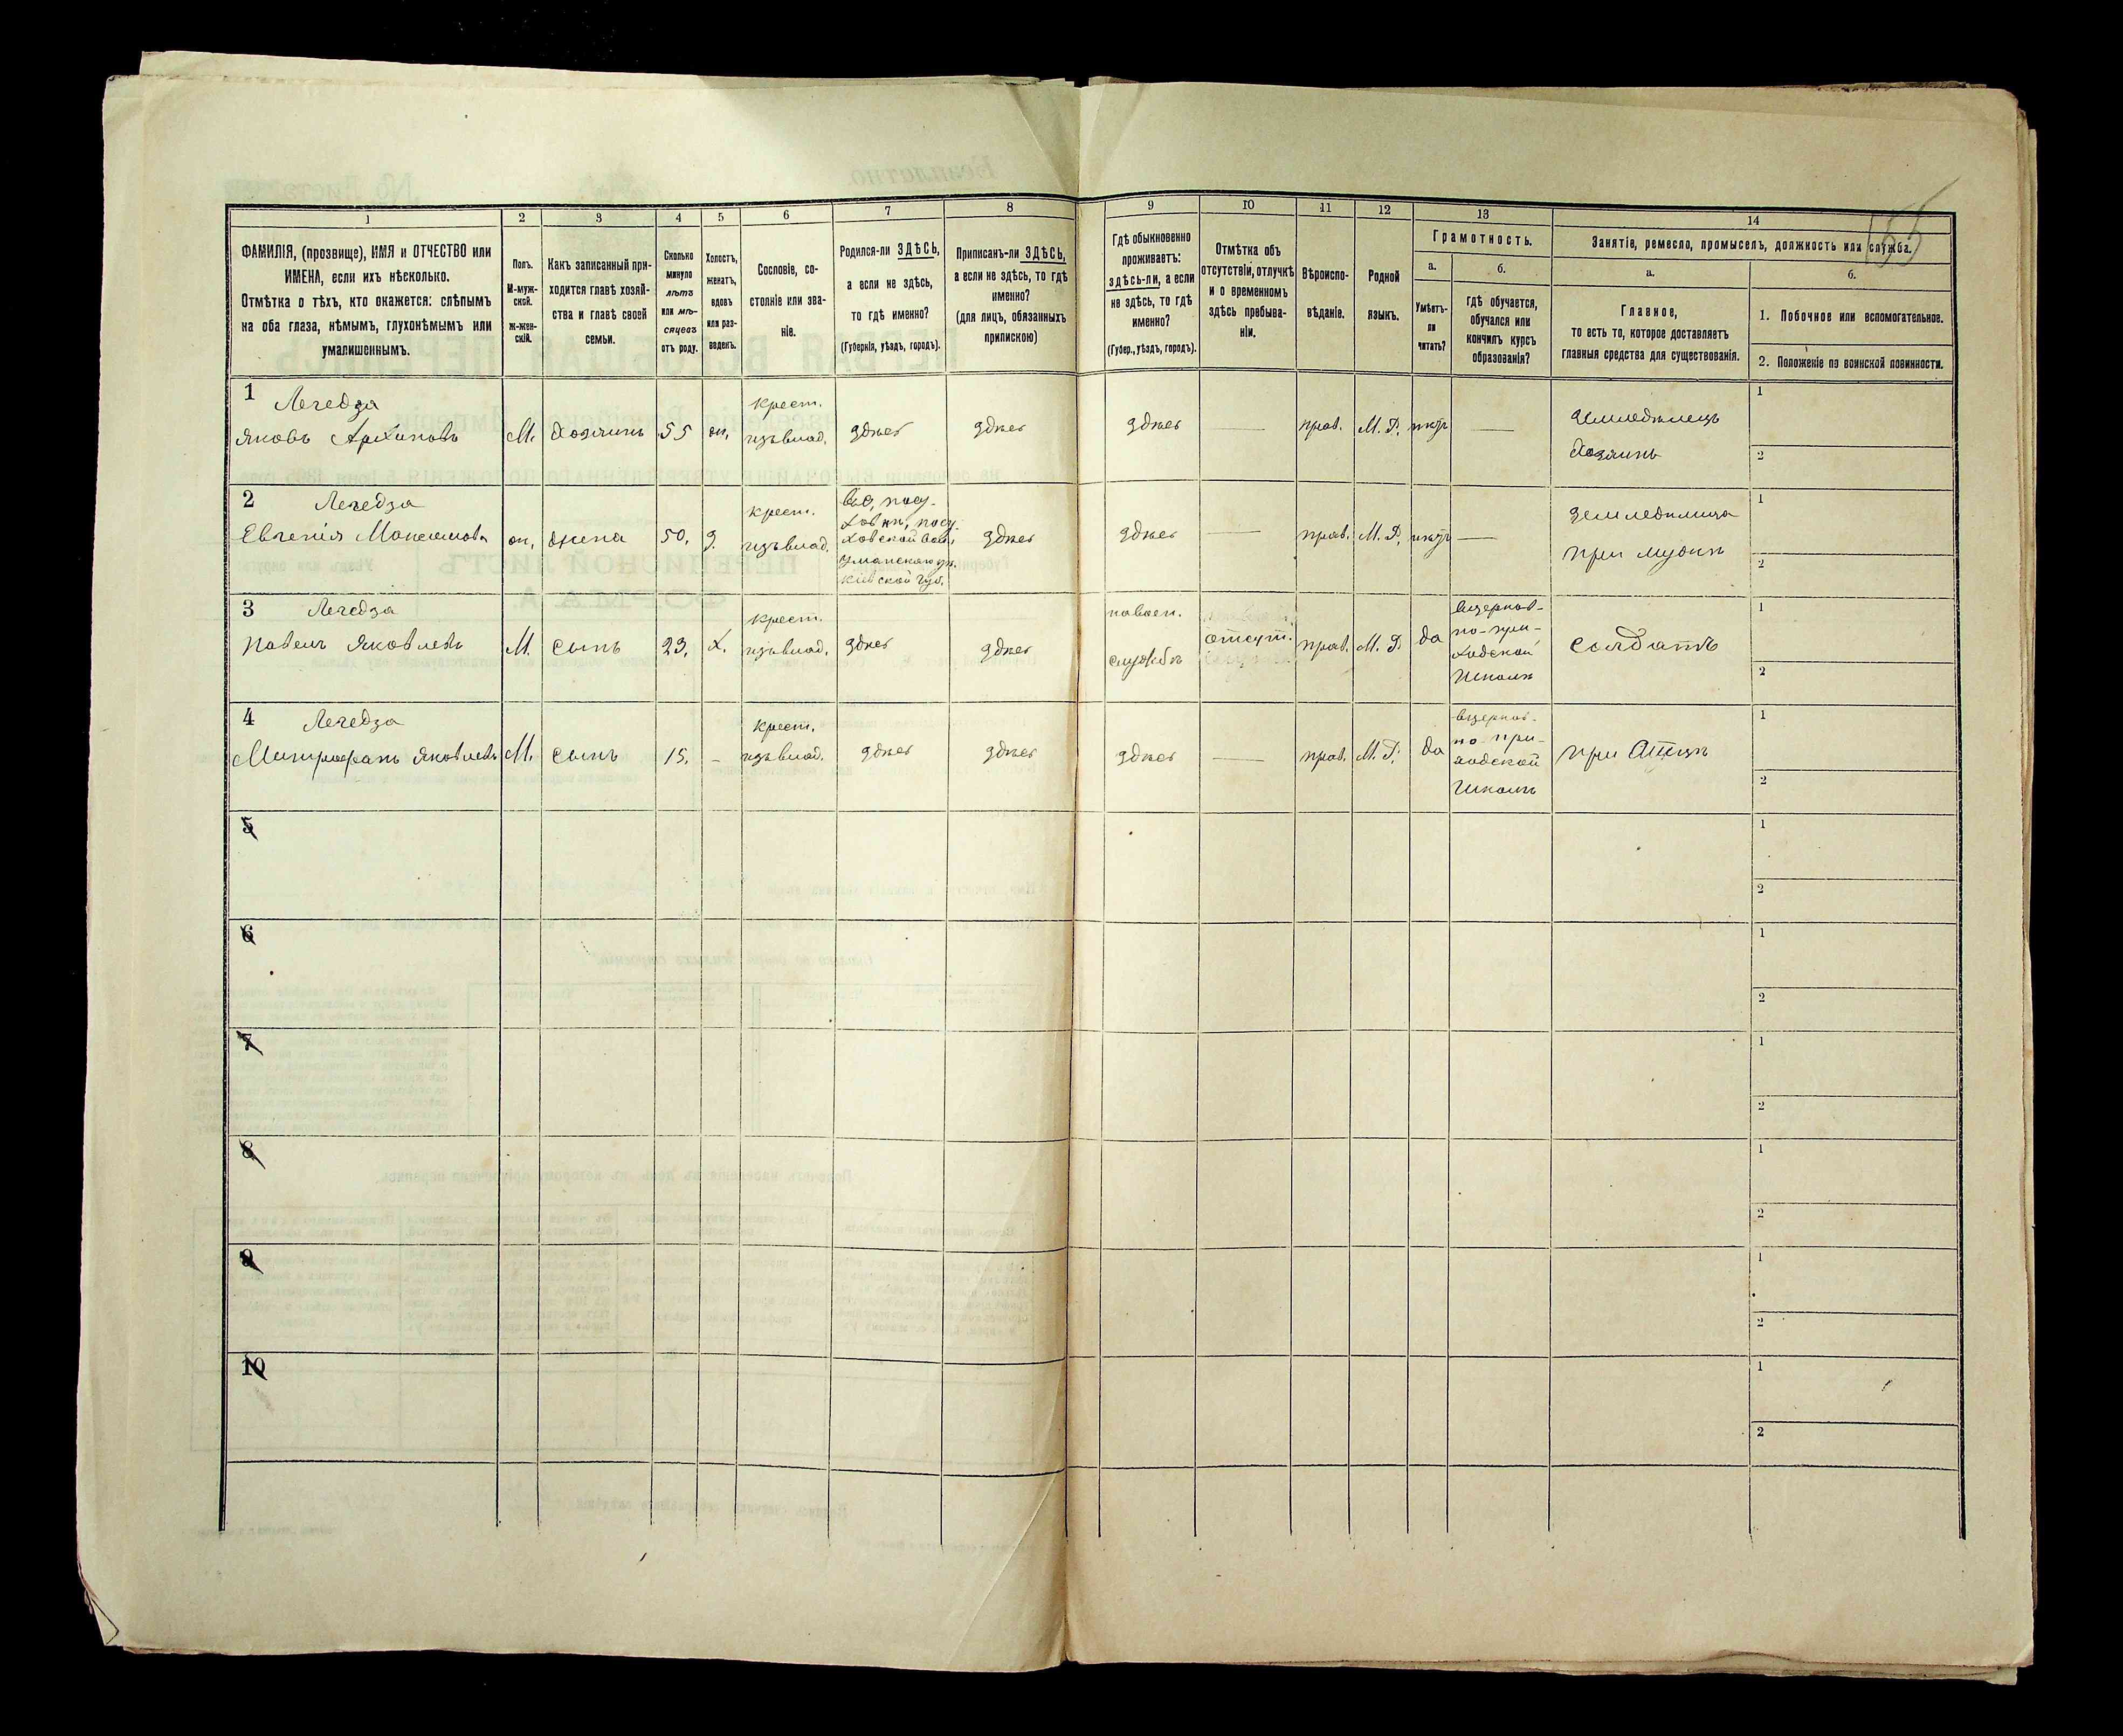 155
1
2
3
4
5
6
7
8
9
10
11
12
13
14
ФАМИЛІЯ, (прозвище), ИМЯ и ОТЧЕСТВО или
ИМЕНА, если ихъ нѣсколько.
Отмѣтка о тѣхъ, кто окажется: слѣпымъ
на оба глаза, нѣмымъ, глухонѣмымъ или
умалишеннымъ.
Полъ.
М-муж-
ской.
Ж-жен-
скій.
Какъ записанный при-
ходится главѣ хозяй-
ства и главѣ своей
семьи.
Сколько
минуло
лѣтъ
или мѣ-
сяцевъ
отъ роду.
Холостъ,
женатъ,
вдовъ
или раз-
веденъ.
Сословіе, со-
стояніе или зва-
ніе.
Родился-ли ЗДѢСЬ,
а если не здѣсь,
то гдѣ именно?
(Губернія, уѣздъ, городъ).
Приписанъ-ли ЗДѢСЬ,
а если не здѣсь, то гдѣ
именно?
(для лицъ, обязанныхъ
припискою)
Гдѣ обыкновенно
проживаетъ:
здѣсь-ли, а если
не здѣсь, то гдѣ
именно?
(Губер., уѣздъ, городъ).
Отмѣтка объ
отсутствіи, отлучкѣ
и о временномъ
здѣсь пребыва-
ніи.
Вѣроиспо-
вѣданіе.
Родной
языкъ.
Грамотность.
а.
Умѣетъ-
ли
читать?
б.
гдѣ обучается,
обучался или
кончилъ курсъ
образованія?
Занятіе, ремесло, промыселъ, должность или служба.
а.
Главное,
то есть то, которое доставляетъ
главныя средства для существованія.
б.
1. Побочное или вспомогательное.
2. Положеніе по воинской повинности.
1
Лечедза
Яковъ Архиповъ
М.
Хозяинъ
55
ж.
крест.
изъвлад.
здѣсь
здѣсь
здѣсь
прав.
М. Р.
нѣтъ
Земледѣлецъ
Хозяинъ
1
2
2
Лечедза
Евгенія Максимова
ж.
жена
50.
з.
крест.
изъвлад.
Кіевской губ.
здѣсь
здѣсь
прав.
М. Р.
нѣтъ
Земледѣлица
при мужѣ
1
2
3
Лечедза
Павелъ Яковлевъ
М.
сынъ
23.
х.
крест.
изъвлад.
здѣсь
здѣсь
навоен.
службѣ
отсут.
прав.
М. Р.
да
вцерков-
но-при-
ходской
Школѣ
солдатъ
1
2
4
Лечедза
Митрофанъ Яковлевъ
М.
сынъ
15.
крест.
изъвлад.
здѣсь
здѣсь
здѣсь
прав.
М. Р.
да
вцерков-
но при-
ходской
Школѣ
при Отцѣ
1
2
5
1
2
6
1
2
7
1
2
8
1
2
9
1
2
10
1
2